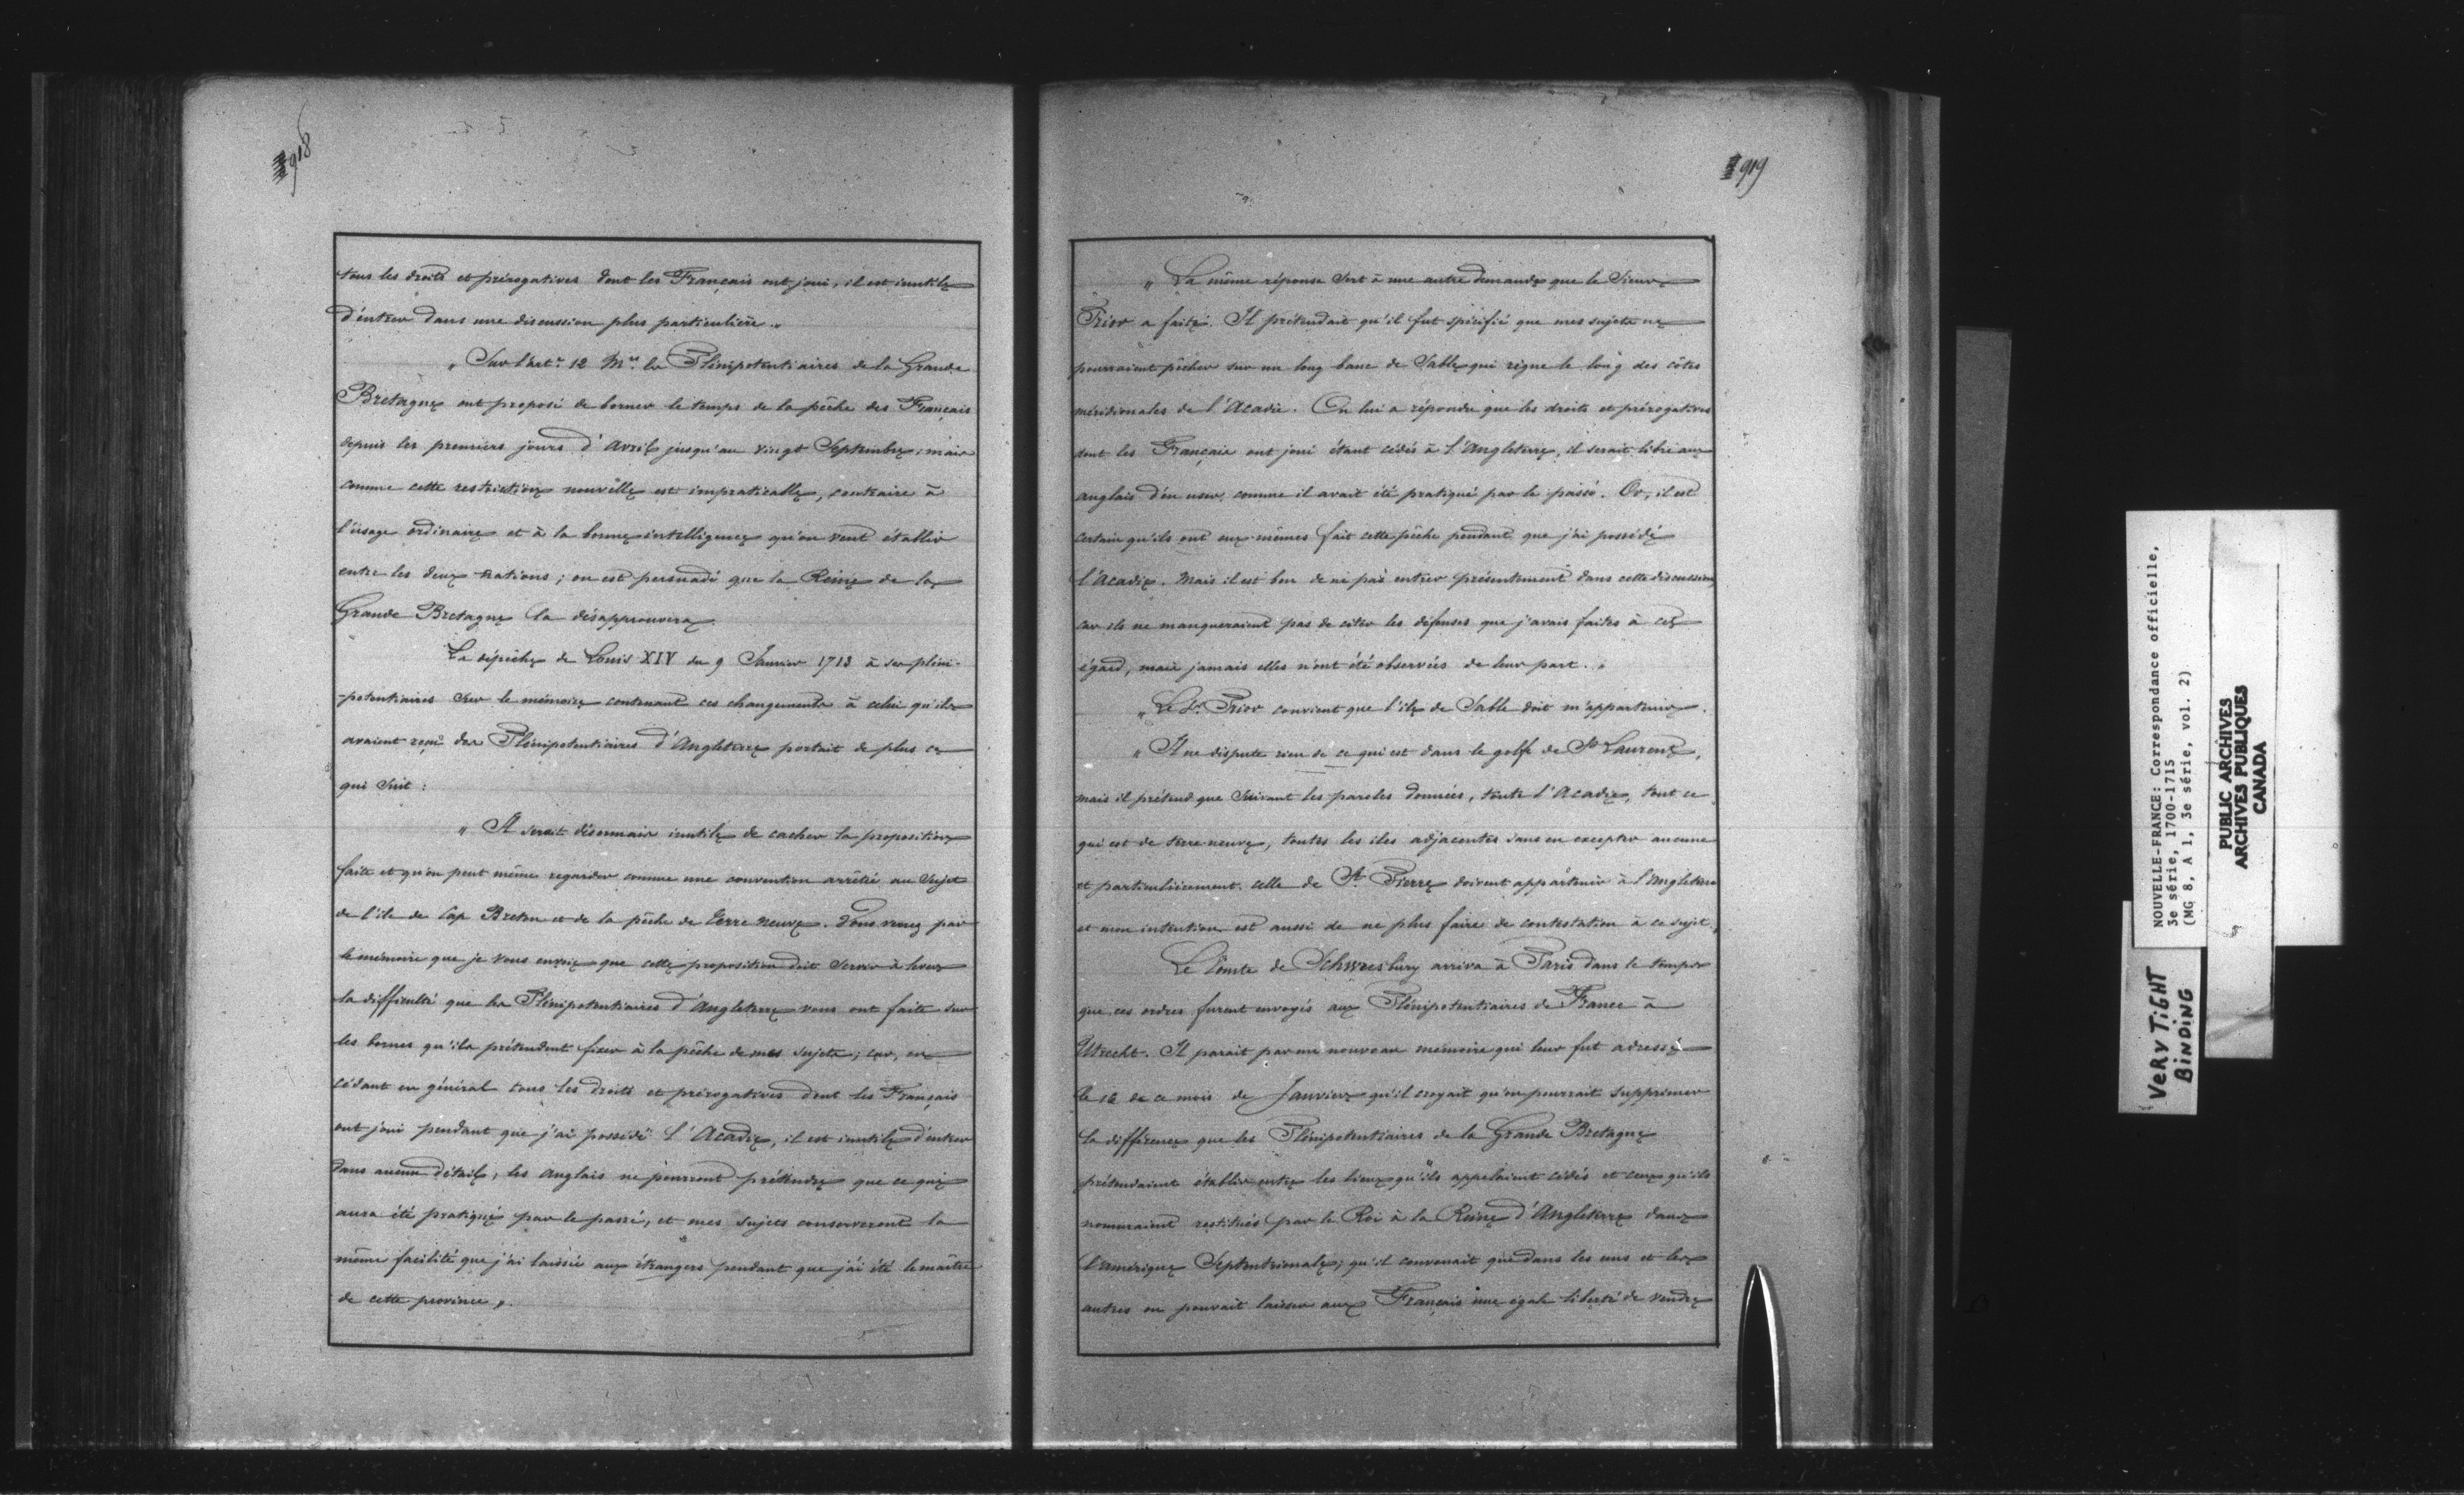 918
tous les droits et prérogatives dont les Français ont joui, il est inutile
d'entrer dans une discussion plus particulière."
" Sur l'art. 12 Mrs les Plénipotentiaires de la Grande
Bretagne ont proposé de borner le temps de la pêche des Français
depuis les premiers jours d'Avril jusqu'au vingt Septembre; mais
comme cette restriction nouvelle est impraticable, contraire à
l'usage ordinaire et à la bonne intelligence qu'on veut établir
entre les deux nations; on est persuadé que la Reine de la
Grande Bretagne la désapprouvera.
La dépêche de Louis XIV du 9 Janvier 1713 à ses pléni-
-potentiaires sur le mémoire contenant ces changements à celui qu'ils
avaient reçu des Plénipotentiaires d'Angleterre portait de plus ce
qui suit :
" Il serait désormais inutile de cacher la proposition
faite et qu'on peut même regarder comme une convention arrêtée au sujet
de l'île de Cap Breton et de la pêche de Terre neuve. Vous verrez par
le mémoire que je vous envoie que cette proposition doit servir à lever
la difficulté que les Plénipotentiaires d'Angleterre vous ont faite sur
les bornes qu'ils prétendent fixer à la pêche de mes sujets; car, en
cédant en général tous les droits et prérogatives dont les Français
ont joui pendant que j'ai possédé l'Acadie, il est inutile d'entrer
dans aucun détail; les anglais ne pourront prétendre que ce qui
aura été pratiqué par le passé, et mes sujets conserveront la
même facilité que j'ai laissée aux étrangers pendant que j'ai été le maître
de cette province ".
919
" La même réponse sert à une autre demande que le Sieur
Prior a faite. Il prétendait qu'il fut spécifié que mes sujets ne
pourraient pêcher sur un long banc de Sable qui règne le long des côtes
méridionales de l'Acadie. On lui a répondu que les droits et prérogatives
dont les Français ont joui étant cédés à l'Angleterre, il serait libre aux
anglais d'en user comme il avait été pratiqué par le passé. Or, il est
certain qu'ils ont eux-mêmes fait cette pêche pendant que j'ai possédé
l'Acadie. Mais il est bon de ne pas entrer présentement dans cette discussion,
car ils ne manqueraient pas de citer les défenses que j'avais faites à cet
égard, mais jamais elles n'ont été observées de leur part. "
" Le Sr. Prior convient que l'île de Sable doit m'appartenir.
" Il ne dispute rien de ce qui est dans le golfe de St Laurent,
mais il prétend que suivant les paroles données, toute l'Acadie, tout ce
qui est de terre-neuve, toutes les îles adjacentes sans en excepter aucune
et particulièrement celle de St Pierre doivent appartenir à l'Angleterre
et mon intention est aussi de ne plus faire de contestation à ce sujet.
Le Comte de Schwresbury arriva à Paris dans le temps
que ces ordres furent envoyés aux Plénipotentiaires de France à
Utrecht. Il paraît par un nouveau mémoire qui leur fut adressé
le 16 de ce mois de Janvier qu'il croyait qu'on pourrait supprimer
la différence que les Plénipotentiaires de la Grande Bretagne
prétendaient établir entre les lieux qu'ils appelaient cédés et ceux qu'ils
nommaient restitués par le Roi à la Reine d'Angleterre dans
l'amérique Septentrionale; qu'il convenait que dans les uns et les
autres on pouvait laisser aux Français une égale liberté de vendre
NOUVELLE-FRANCE: Correspondance officielle,
3e série, 1700-1715
(MG 8, A 1, 3e série, vol. 2)
PUBLIC ARCHIVES
ARCHIVES PUBLIQUES
CANADA
VERY TIGHT
BINDING